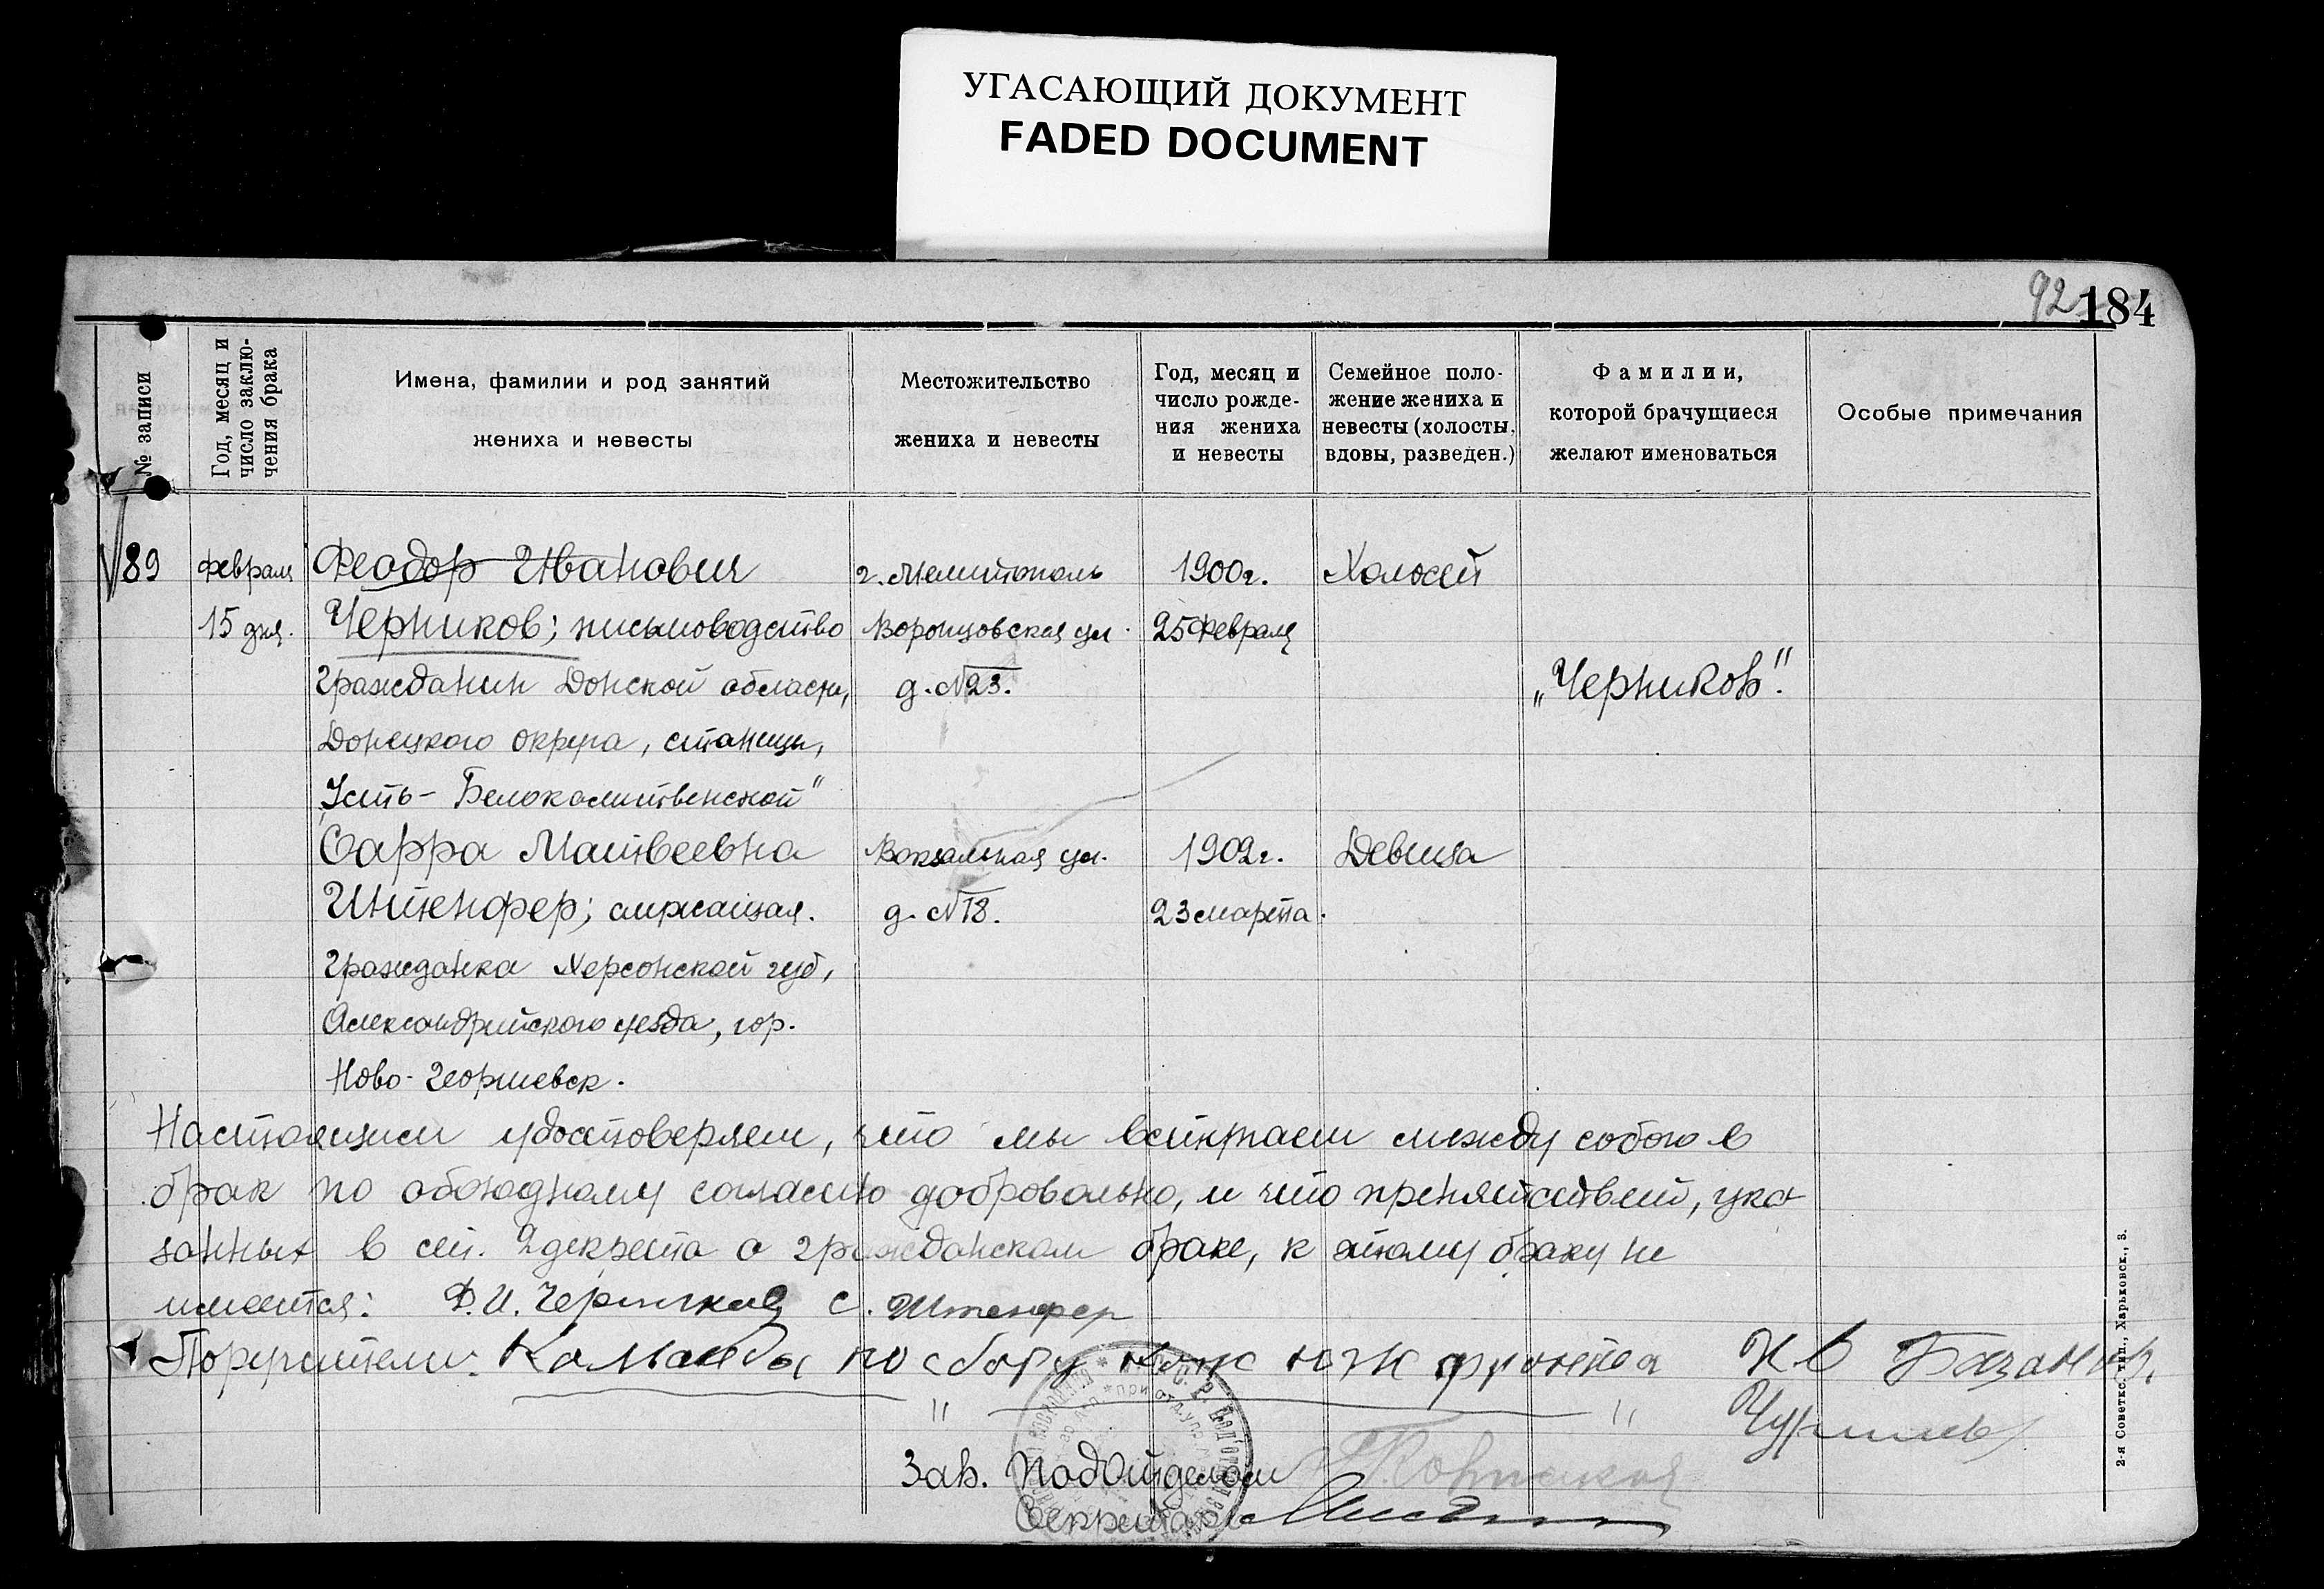 УГАСАЮЩИЙ ДОКУМЕНТ
FADED DOCUMENT
92 184
№ записи
Год, месяц и
число заклю-
чения брака
Имена, фамилии и род занятий
жениха и невесты
Местожительство
жениха и невесты
Год, месяц и
число рожде-
ния жениха
и невесты
Семейное поло-
жение жениха и
невесты (холосты,
вдовы, разведен.)
Фамилии,
которой брачущиеся
желают именоваться
Особые примечания
89 февраля Феодор Иванович г. Мелитополь 1900г. Холостй
15 дня. Черников; письмоводство Воронцовская ул. 25 февраля
гражданин Донской области, д. №23. „Черников".
Донецкого округа, станицы,
„Усть-Белокалитвенской"
Сарра Матвеевна Вокзальная ул. 1902г. Девица
Штенфер; служащая. д. №18. 23 марта.
гражданка Херсонской губ,
Александрийского уезда, гор.
Ново-Георгиевск.
Настоящим удостоверяем, что мы вступаем между собою в
брак по обоюдному согласию добровольно, и что препятствий, ука-
занных в ст. 2 декрета о гражданском браке, к этому браку не
имеется: Ф.И. Черников С. Штенфер
Поручители: Команды по сбору юж фронта К В Базанов.
" "
Зав. Подотделом
Секретарь
2-я Советск. тип., Харьковск., 3.